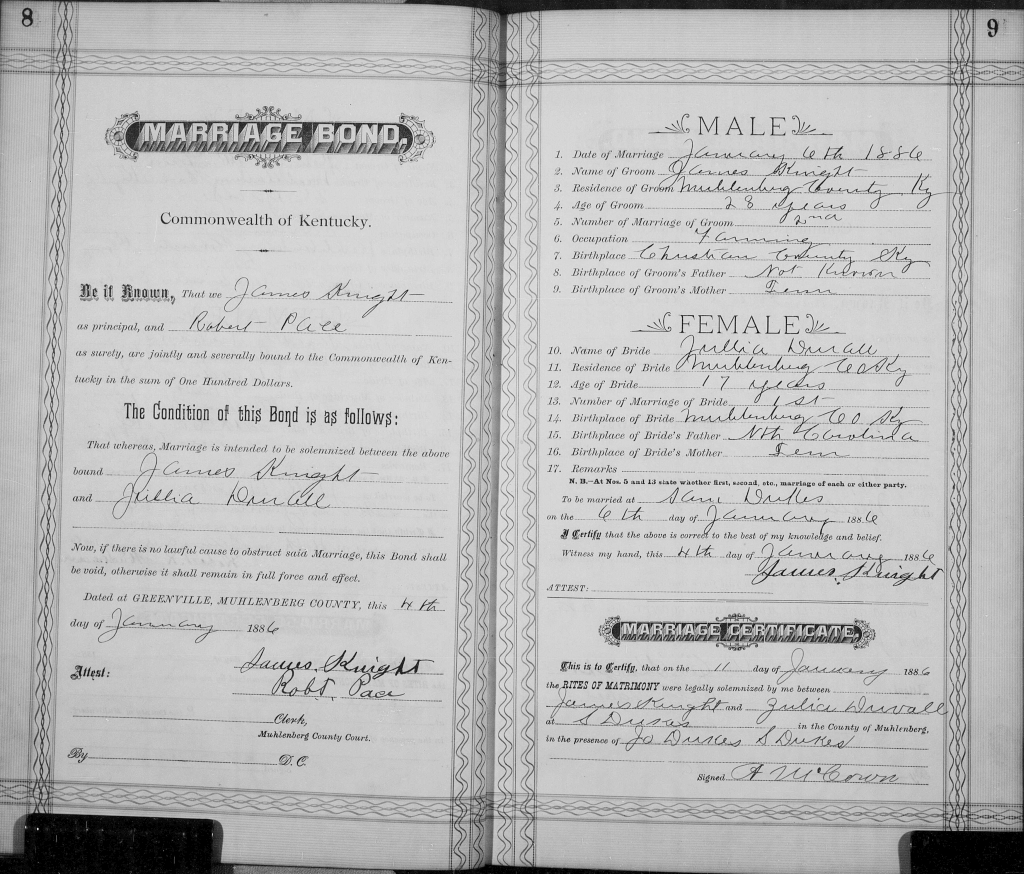 8
MARRIAGE BOND.
Commonwealth of Kentucky.
Be it Known, That we James Knight
as principal, and Robert Pace
as surety, are jointly and severally bound to the Commonwealth of Ken-
tucky in the sum of One Hundred Dollars.
The Condition of this Bond is as follows:
That whereas, Marriage is intended to be solemnized between the above
bound James Knight
and Jullia Duvall
Now, if there is no lawful cause to obstruct said Marriage, this Bond shall
be void, otherwise it shall remain in full force and effect.
Dated at GREENVILLE, MUHLENBERG COUNTY, this 4th
day of January 1886
Attest: James Knight
Robt. Pace
Clerk,
Muhlenberg County Court.
By D.C.
9
MALE
1. Date of Marriage January 6th 1886
2. Name of Groom James Knight
3. Residence of Groom Muhlenberg County Ky
4. Age of Groom 28 years
5. Number of Marriage of Groom 2nd
6. Occupation Farming
7. Birthplace Christian County Ky
8. Birthplace of Groom's Father Not Known
9. Birthplace of Groom's Mother Tenn
FEMALE
10. Name of Bride Jullia Duvall
11. Residence of Bride Muhlenberg Co Ky
12. Age of Bride 17 years
13. Number of Marriage of Bride 1st
14. Birthplace of Bride Muhlenberg Co Ky
15. Birthplace of Bride's Father Nth Carolina
16. Birthplace of Bride's Mother Tenn
17. Remarks
N. B.—At Nos. 5 and 13 state whether first, second, etc., marriage of each or either party.
To be married at Sam Dukes
on the 6th day of January 1886
I Certify that the above is correct to the best of my knowledge and belief.
Witness my hand, this 4th day of January 1886
James Knight
ATTEST:
MARRIAGE CERTIFICATE.
This is to Certify, that on the 11 day of January 1886
the RITES OF MATRIMONY were legally solemnized by me between
James Knight and Julia Duvall
at S Dukes in the County of Muhlenberg,
in the presence of Jo Dukes S Dukes
Signed A McCown